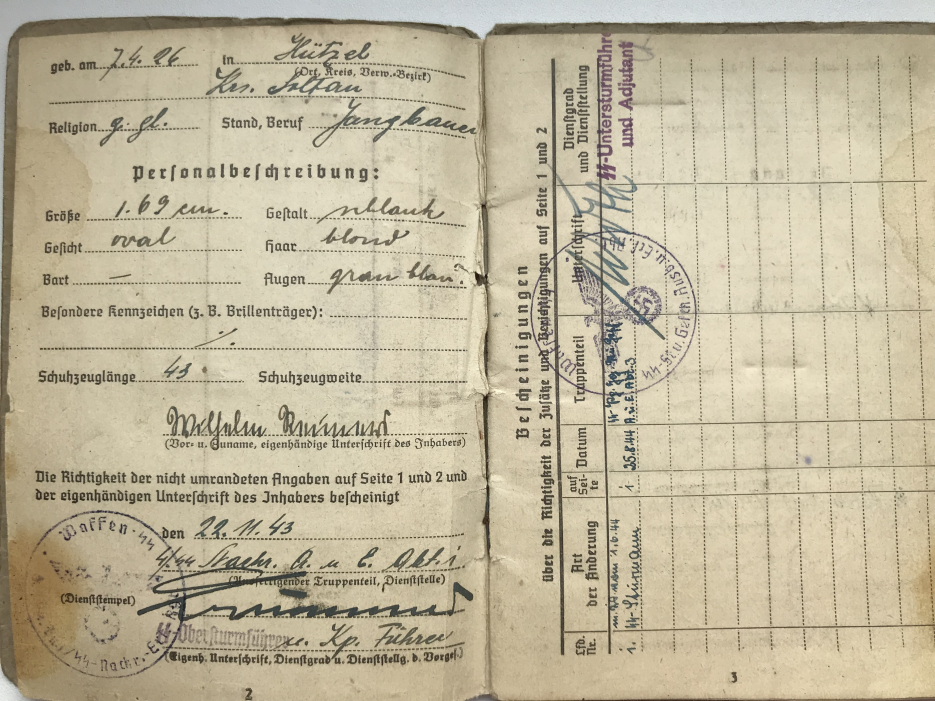 geb. am 7.4.26 in Hützel
(Ort, Kreis, Verw.-Bezirk)
Krs. Soltau
Religion g. gl. Stand, Beruf Jungbauer
Personalbeschreibung:
Größe 1.69 cm. Gestalt schlank
Gesicht oval Haar blond
Bart — Augen grau blau.
Besondere Kennzeichen (z. B. Brillenträger):
./.
Schuhzeuglänge 43 Schuhzeugweite
Wilhelm Reimers
(Vor- u. Zuname, eigenhändige Unterschrift des Inhabers)
Die Richtigkeit der nicht umrandeten Angaben auf Seite 1 und 2 und
der eigenhändigen Unterschrift des Inhabers bescheinigt
den 22.11.43
4/SS Nachr. A. u. E. Abt. 1
(Ausfertigender Truppenteil, Dienststelle)
(Dienststempel)
SS-Obersturmführer u. Kp. Führer
(Eigenh. Unterschrift, Dienstgrad u. Dienststellg. d. Vorges.)
Waffen-SS
SS-Nachr.
2
Bescheinigungen
über die Richtigkeit der Zusätze und Berichtigungen auf Seite 1 und 2
Lfd. Nr.
Art der Änderung
auf Seite
Datum
Truppenteil
Unterschrift
Dienstgrad und Dienststellung
1. m. W. vom 1.6.44
SS-Sturmmann
1
25.8.44
A. u. E. Abt. 3
SS-Untersturmführer
und Adjutant
SS-Pz. u. Gesch. Ausb. u. Ers. Abt.
3